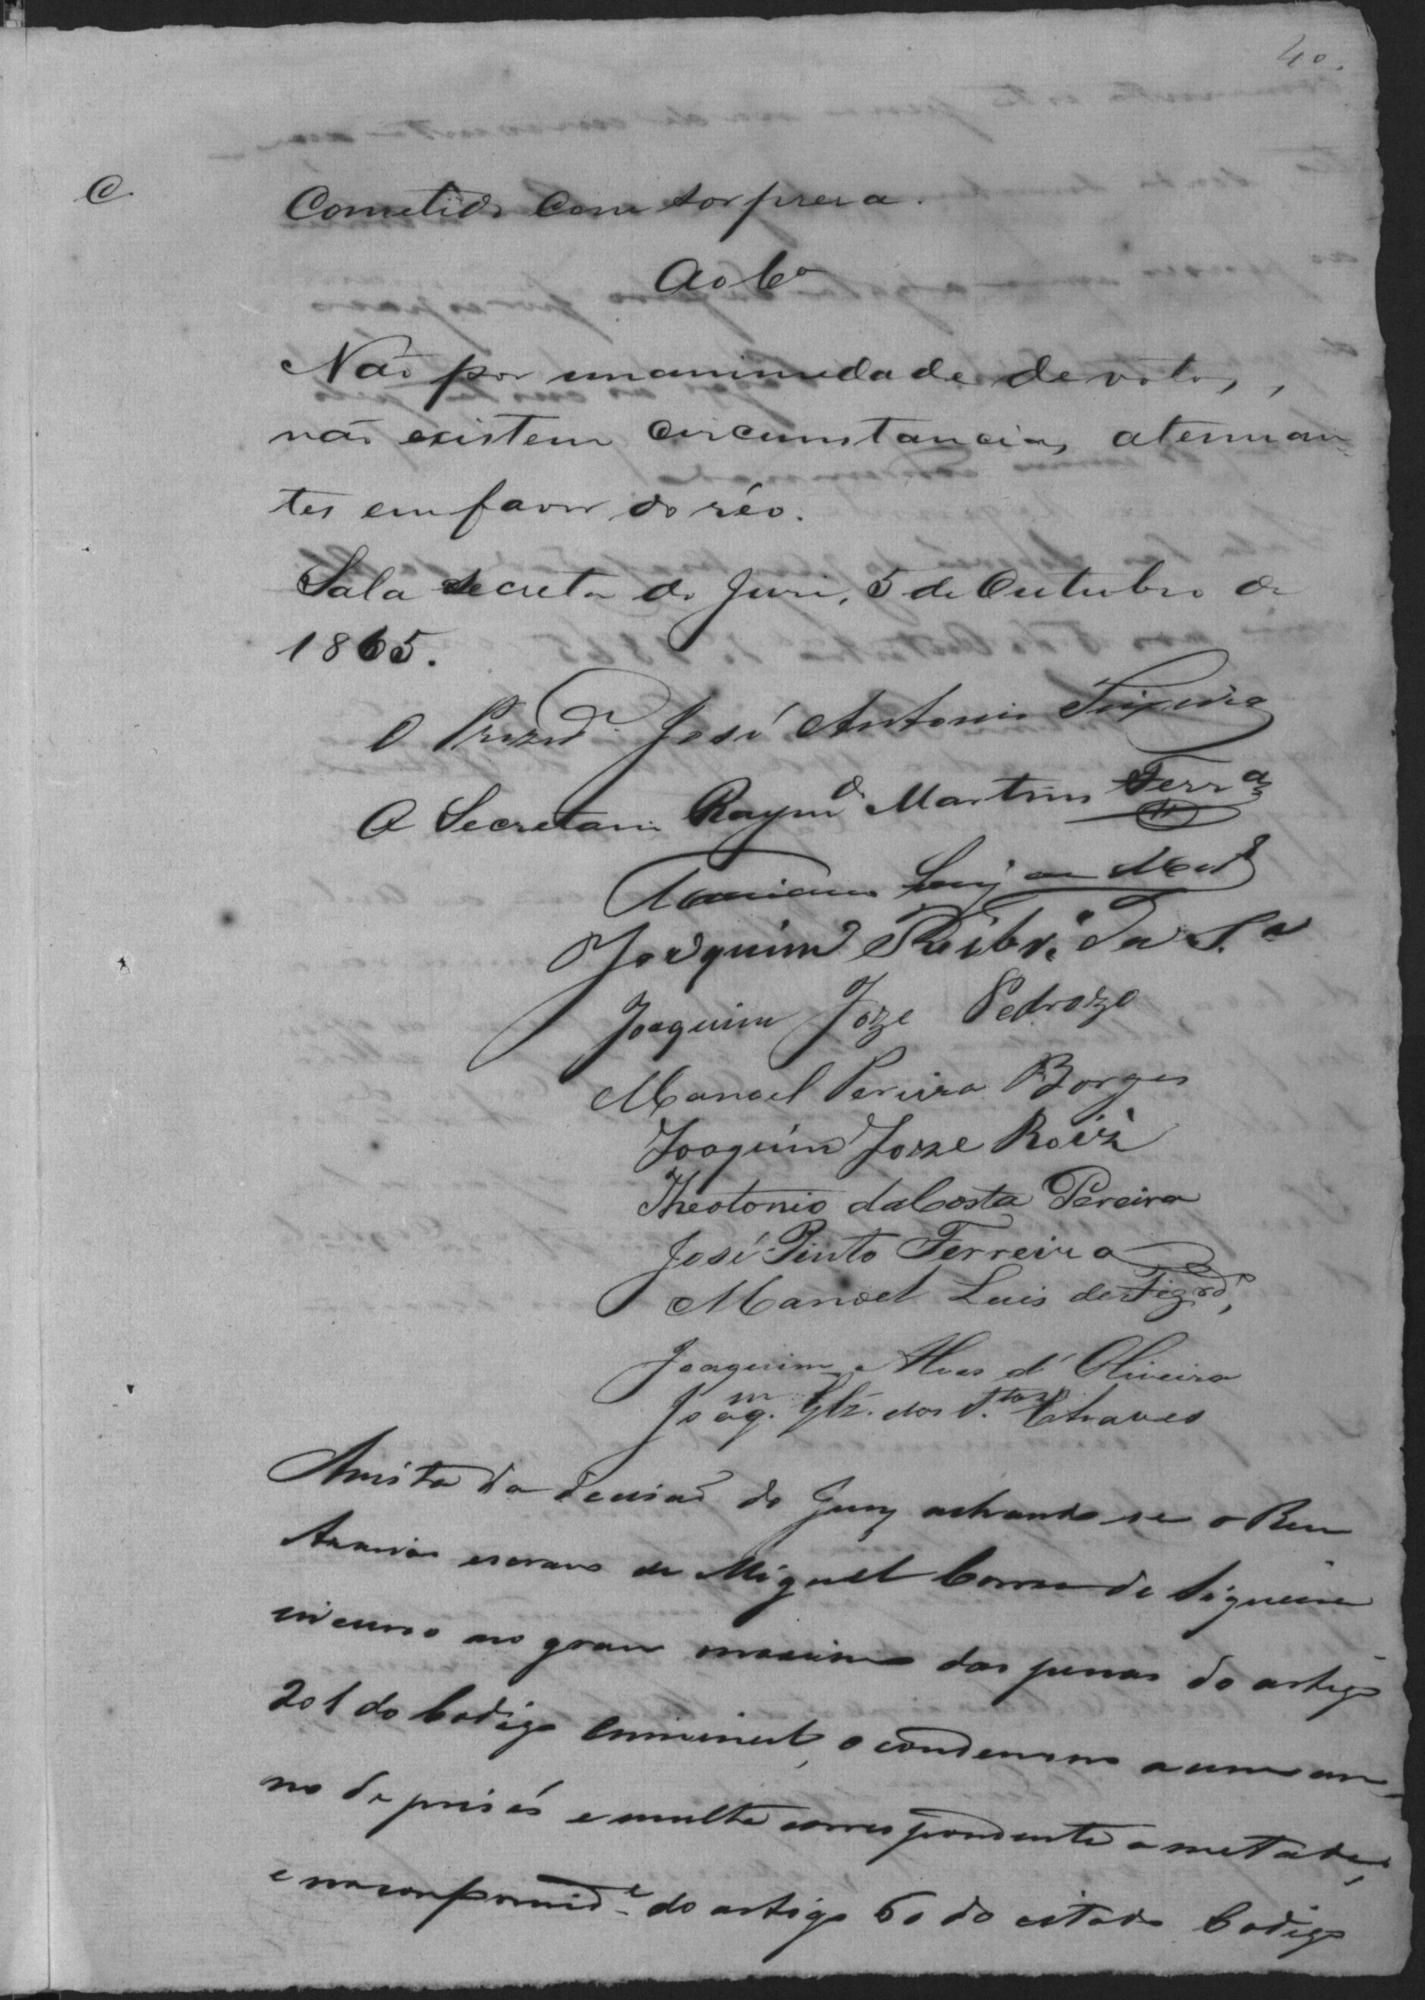 40.
C.
Cometido com sorpresa.
Ao 6º
Não por unanimidade de votos,
não existem circumstancias atenuan-
tes em favor do réo.
Sala secreta do Juri, 5 de Outubro de
1865.
O Prezd.e José Antonio Teixeira
O Secretario Raymdo Martins Ferra
Luiz
Joaquim Ribr.o da S.a
Joaquim Joze Pedrozo
Manoel Pereira Borges
Joaquim Joze Roiz
Theotonio da Costa Pereira
José Pinto Ferreira
Manoel Luis de Figrdo,
Joaquim Alves d'Oliveira
Joaqm. Glz. dos S.tos Chaves
Avista da decisão do Jury achando se o Reu
escravo de Miguel Correa de Siqueira
incurso no grau maximo das penas do artigo
201 do Codigo Criminal, o condemno a um an-
no de prisão e multa correspondente a metade,
e na conformid.e do artigo 60 do citado Codigo